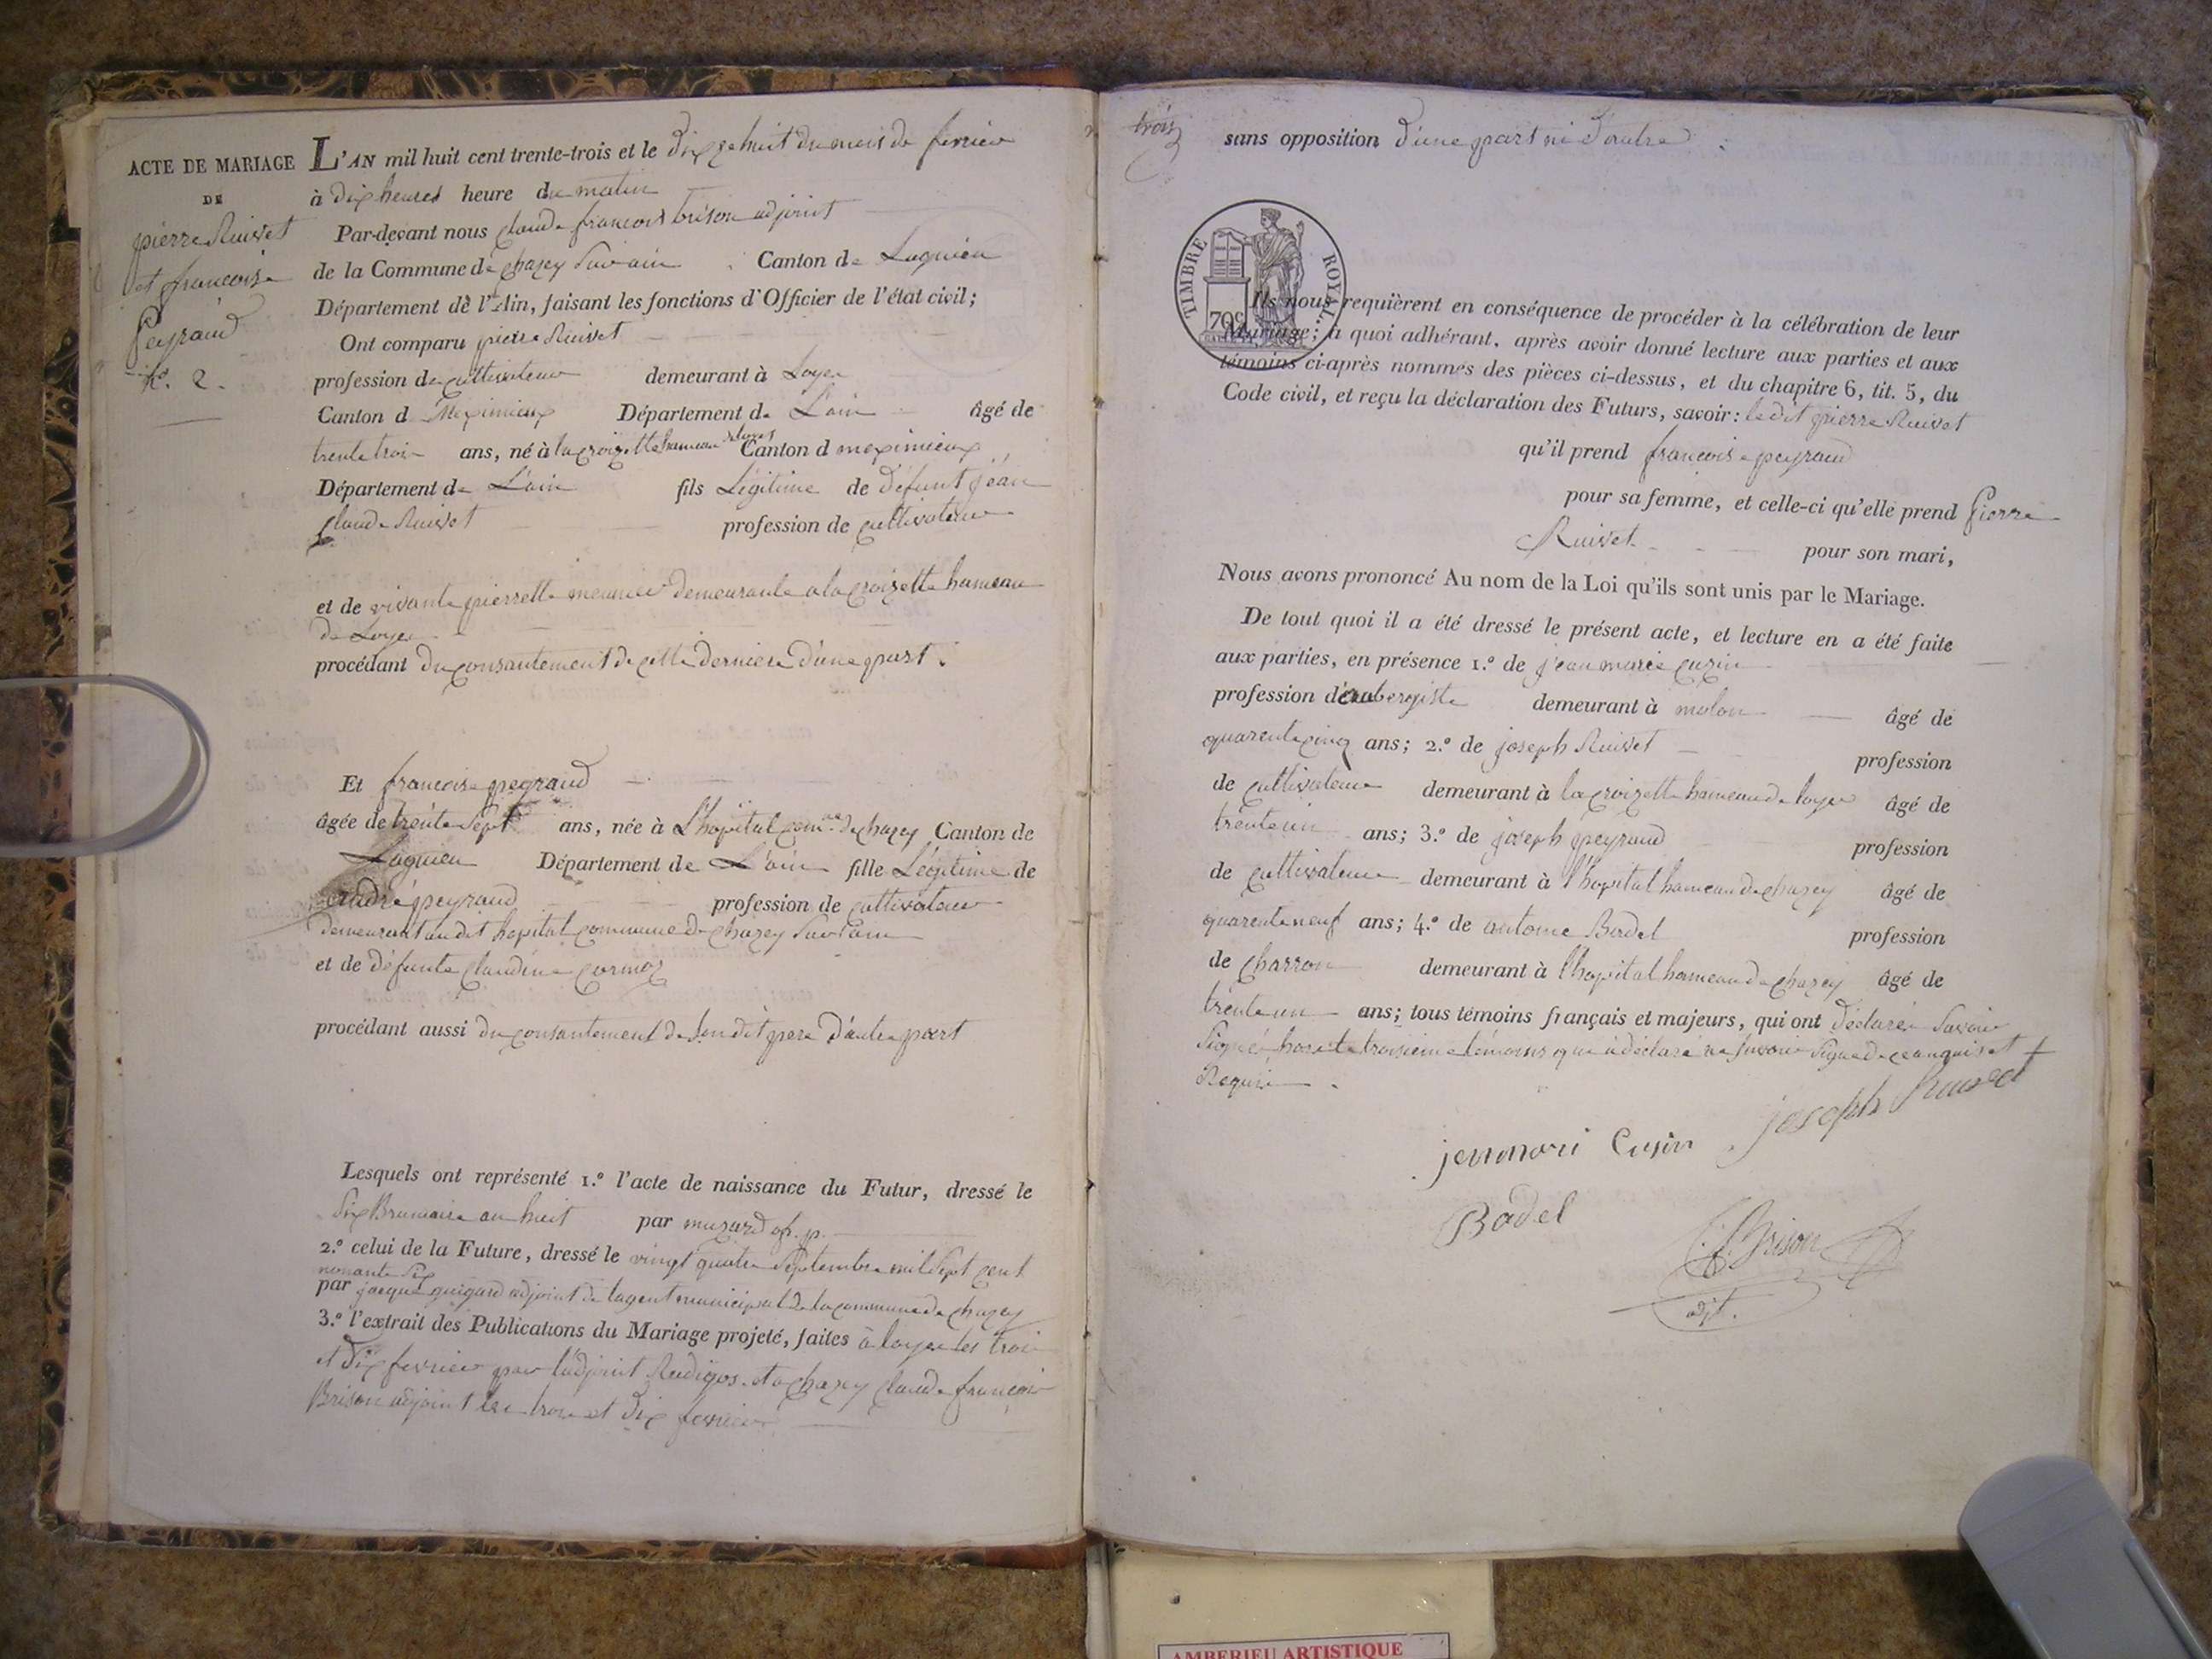 ACTE DE MARIAGE
DE
pierre Ruivet
et francoise
Peyraud
N.º 2.
L'AN mil huit cent trente-trois et le dix huit du mois de fevrier
à dix heures heure du matin
Par-devant nous claude francois brison adjoint
de la Commune de chazey Sur ain Canton de Lagnieu
Département de l'Ain, faisant les fonctions d'Officier de l'état civil;
Ont comparu pierre Ruivet
profession de cultivateur demeurant à Loyes
Canton d Meximieux Département de L'ain âgé de
trente trois ans, né à la croizette hameau de loyes Canton d meximieux
Département de L'ain fils Légitime de défunt jéan
claude Ruivet profession de cultivateur
et de vivante pierrette meunier demeurante a la croizette hameau
de Loyes
procédant du consantement de cette derniere d'une part.
Et francoise peyraud
âgée de trente Sept ans, née à L'hôpital com.ne de chazey Canton de
Lagnieu Département de L'ain fille Légitime de
andré peyraud profession de cultivateur
demeurant au dit hopital commune de chazey Sur l'ain
et de défunte claudine cormoz
procédant aussi du consantement de Son dit pere d'autre part
Lesquels ont représenté 1.º l'acte de naissance du Futur, dressé le
Six Brumaire an huit par muzard of. p.
2.º celui de la Future, dressé le vingt quatre Septembre mil Sept cent
nonante Six
par jacque guigard adjoint de lagent municipal de la commune de chazey
3.º l'extrait des Publications du Mariage projeté, faites à loyes les trois
et dix fevrier par l'adjoint Rudigos et a chazey claude françois
Brison adjoint les trois et dix fevrier
trois
sans opposition d'une part ni d'autre
TIMBRE ROYAL.
70c
Ils nous requièrent en conséquence de procéder à la célébration de leur
Mariage; à quoi adhérant, après avoir donné lecture aux parties et aux
témoins ci-après nommés des pièces ci-dessus, et du chapitre 6, tit. 5, du
Code civil, et reçu la déclaration des Futurs, savoir: le dit pierre Ruivet
qu'il prend francoise peyraud
pour sa femme, et celle-ci qu'elle prend Pierre
Ruivet pour son mari,
Nous avons prononcé Au nom de la Loi qu'ils sont unis par le Mariage.
De tout quoi il a été dressé le présent acte, et lecture en a été faite
aux parties, en présence 1.º de jean marie cuzin
profession d'aubergiste demeurant à molon âgé de
quarente cinq ans; 2.º de joseph Ruivet profession
de cultivateur demeurant à la croizette hameau de loyes âgé de
trente un ans; 3.º de joseph peyraud profession
de cultivateur demeurant à l'hopital hameau de chazey âgé de
quarente neuf ans; 4.º de antoine Badel profession
de charron demeurant à l'hopital hameau de chazey âgé de
trente un ans; tous témoins français et majeurs, qui ont déclarer Savoir
Signé hors le troisieme témoins que à déclaré ne Savoir Signe de ce enquis et
Requis
jenmari Cusin joseph Ruivet
Badel
C. f. Brison
adjt.
AMBERIEU ARTISTIQUE